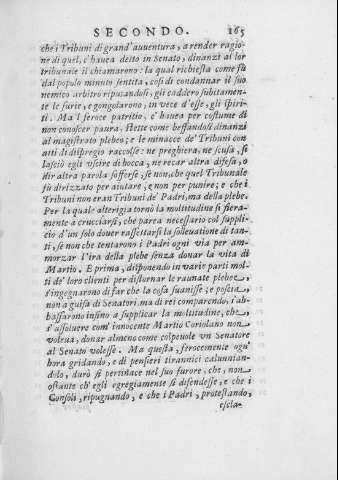 SECONDO. 165
che i Tribuni di grand'auuentura, a render ragio-
ne di quel, c'hauea detto in Senato, dinanzi al lor
tribunale il chiamarono: la qual richiesta come fù
dal popolo minuto sentita, così di condannar il suo
nemico arbitro riputandosi, gli caddero subitamen-
te le furie, e gongolarono, in vece d'esse, gli spiri-
ti. Ma'l feroce patritio, c'hauea per costume di
non conoscer paura, stette come beffandosi dinanzi
al magistrato plebeo; e le minacce de' Tribuni con
atti di dispregio raccolse: ne preghiera, ne scusa, si
lasciò egli vscire di bocca, ne recar altra difesa, o
dir altra parola sofferse, se non, che quel Tribunale
fù dirizzato per aiutare, e non per punire; e che i
Tribuni non eran Tribuni de' Padri, ma della plebe.
Per la quale alterigia tornò la moltitudine sì fiera-
mente a crucciarsi, che parea necessario col suppli-
cio d'un solo douer rassettarsi la solleuatione di tan-
ti, se non che tentarono i Padri ogni via per am-
morzar l'ira della plebe senza donar la vita di
Martio. E prima, disponendo in varie parti mol-
ti de' loro clienti per distornar le raunate plebee,
s'ingegnarono di far che la cosa suanisse; e poscia,
non a guisa di Senatori, ma di rei comparendo, s'ab-
bassarono insino a supplicar la moltitudine, che,
s'assoluere com' innocente Martio Coriolano non
voleua, donar almeno come colpeuole vn Senatore
al Senato volesse. Ma questa, ferocemente ogn'
hora gridando, e di pensieri tirannici calunnian-
dolo, durò sì pertinace nel suo furore, che, non
ostante ch' egli egregiamente si difendesse, e che i
Consoli, ripugnando, e che i Padri, protestando,
escla-